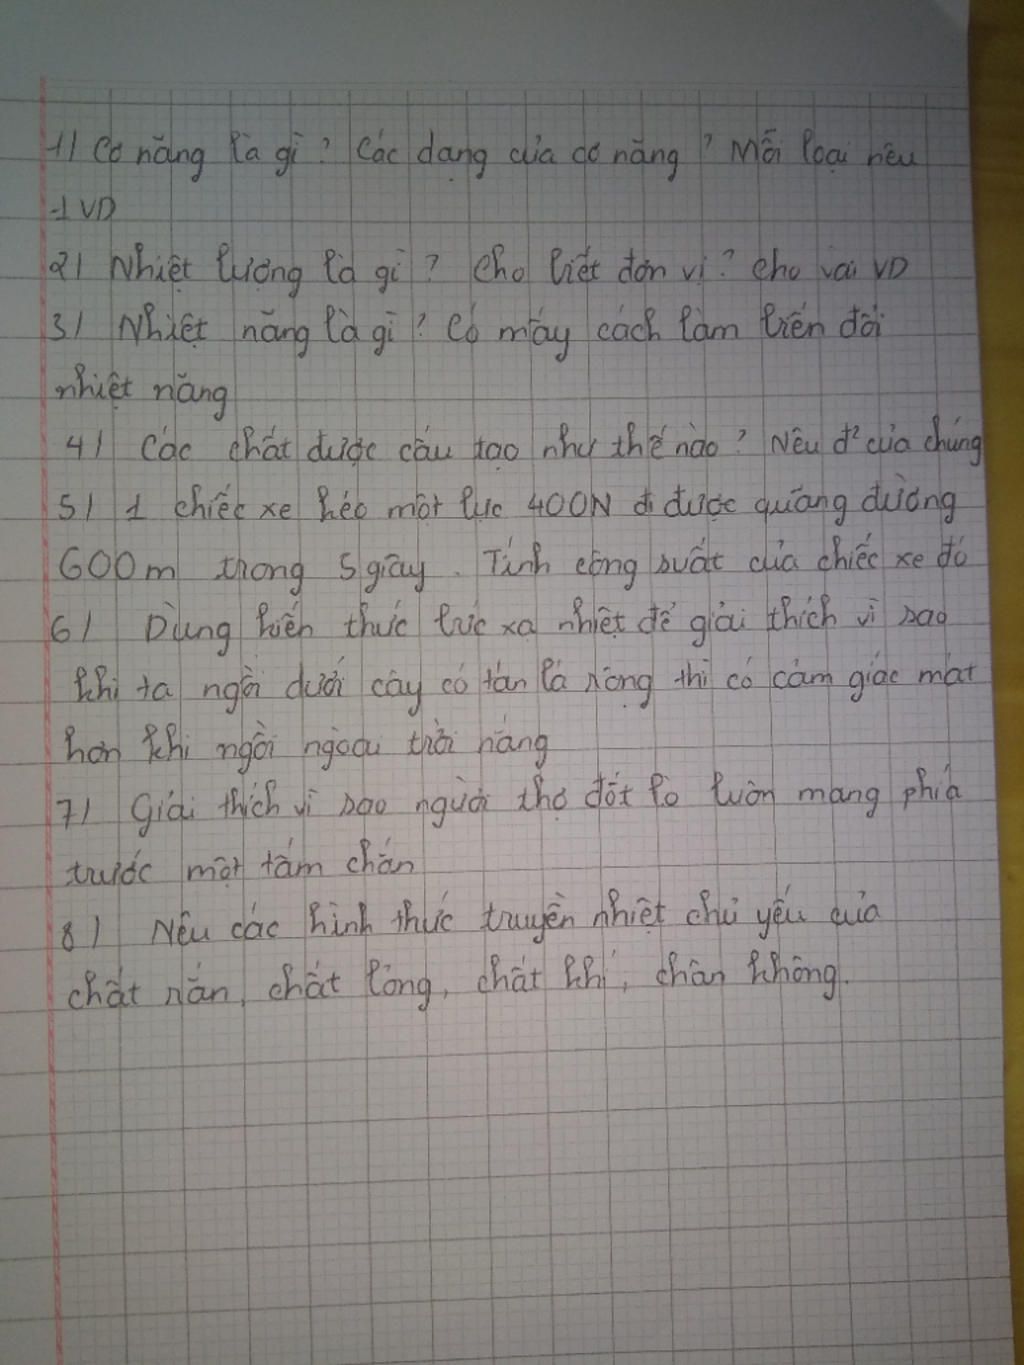 1/ Cơ năng là gì? Các dạng của cơ năng? Mỗi loại nêu
1 VD
2/ Nhiệt lượng là gì? Cho biết đơn vị? Cho vài VD
3/ Nhiệt năng là gì? Có mấy cách làm biến đổi
nhiệt năng
4/ Các chất được cấu tạo như thế nào? Nêu đ² của chúng
5/ 1 chiếc xe kéo một lực 400N đi được quãng đường
600m trong 5 giây. Tính công suất của chiếc xe đó
6/ Dùng kiến thức bức xạ nhiệt để giải thích vì sao
khi ta ngồi dưới cây có tán lá rộng thì có cảm giác mát
hơn khi ngồi ngoài trời nắng
7/ Giải thích vì sao người thợ đốt lò luôn mang phía
trước một tấm chắn
8/ Nêu các hình thức truyền nhiệt chủ yếu của
chất rắn, chất lỏng, chất khí, chân không.